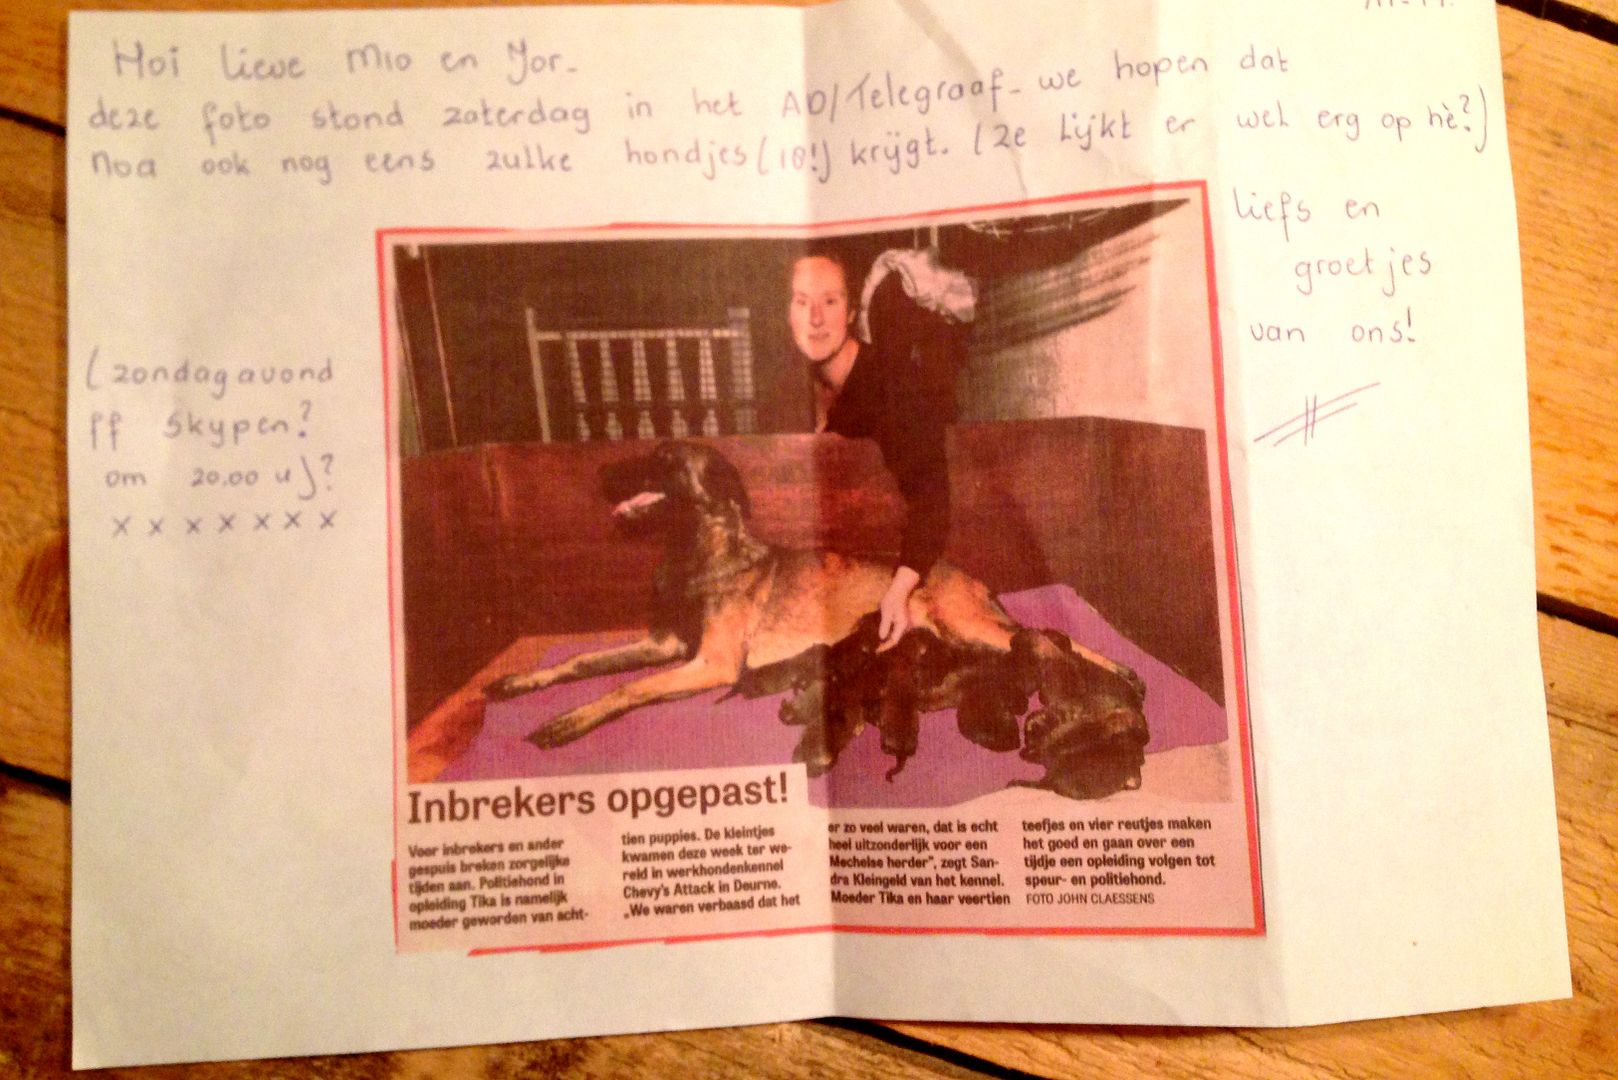 Hoi lieve Mio en Jor.
deze foto stond zaterdag in het AD/Telegraaf - we hopen dat
Noa ook nog eens zulke hondjes (18!) krijgt. (ze lijkt er wel erg op hè?)
liefs en
groetjes
van ons!
(zondagavond
ff skypen?
om 20.00 u)?
x x x x x x x
Inbrekers opgepast!
Voor inbrekers en ander
gespuis breken zorgelijke
tijden aan. Politiehond in
opleiding Tika is namelijk
moeder geworden van acht-
tien puppies. De kleintjes
kwamen deze week ter we-
reld in werkhondenkennel
Chevy's Attack in Deurne.
„We waren verbaasd dat het
er zo veel waren, dat is echt
heel uitzonderlijk voor een
Mechelse herder”, zegt San-
dra Kleingeld van het kennel.
Moeder Tika en haar veertien
teefjes en vier reutjes maken
het goed en gaan over een
tijdje een opleiding volgen tot
speur- en politiehond.
FOTO JOHN CLAESSENS